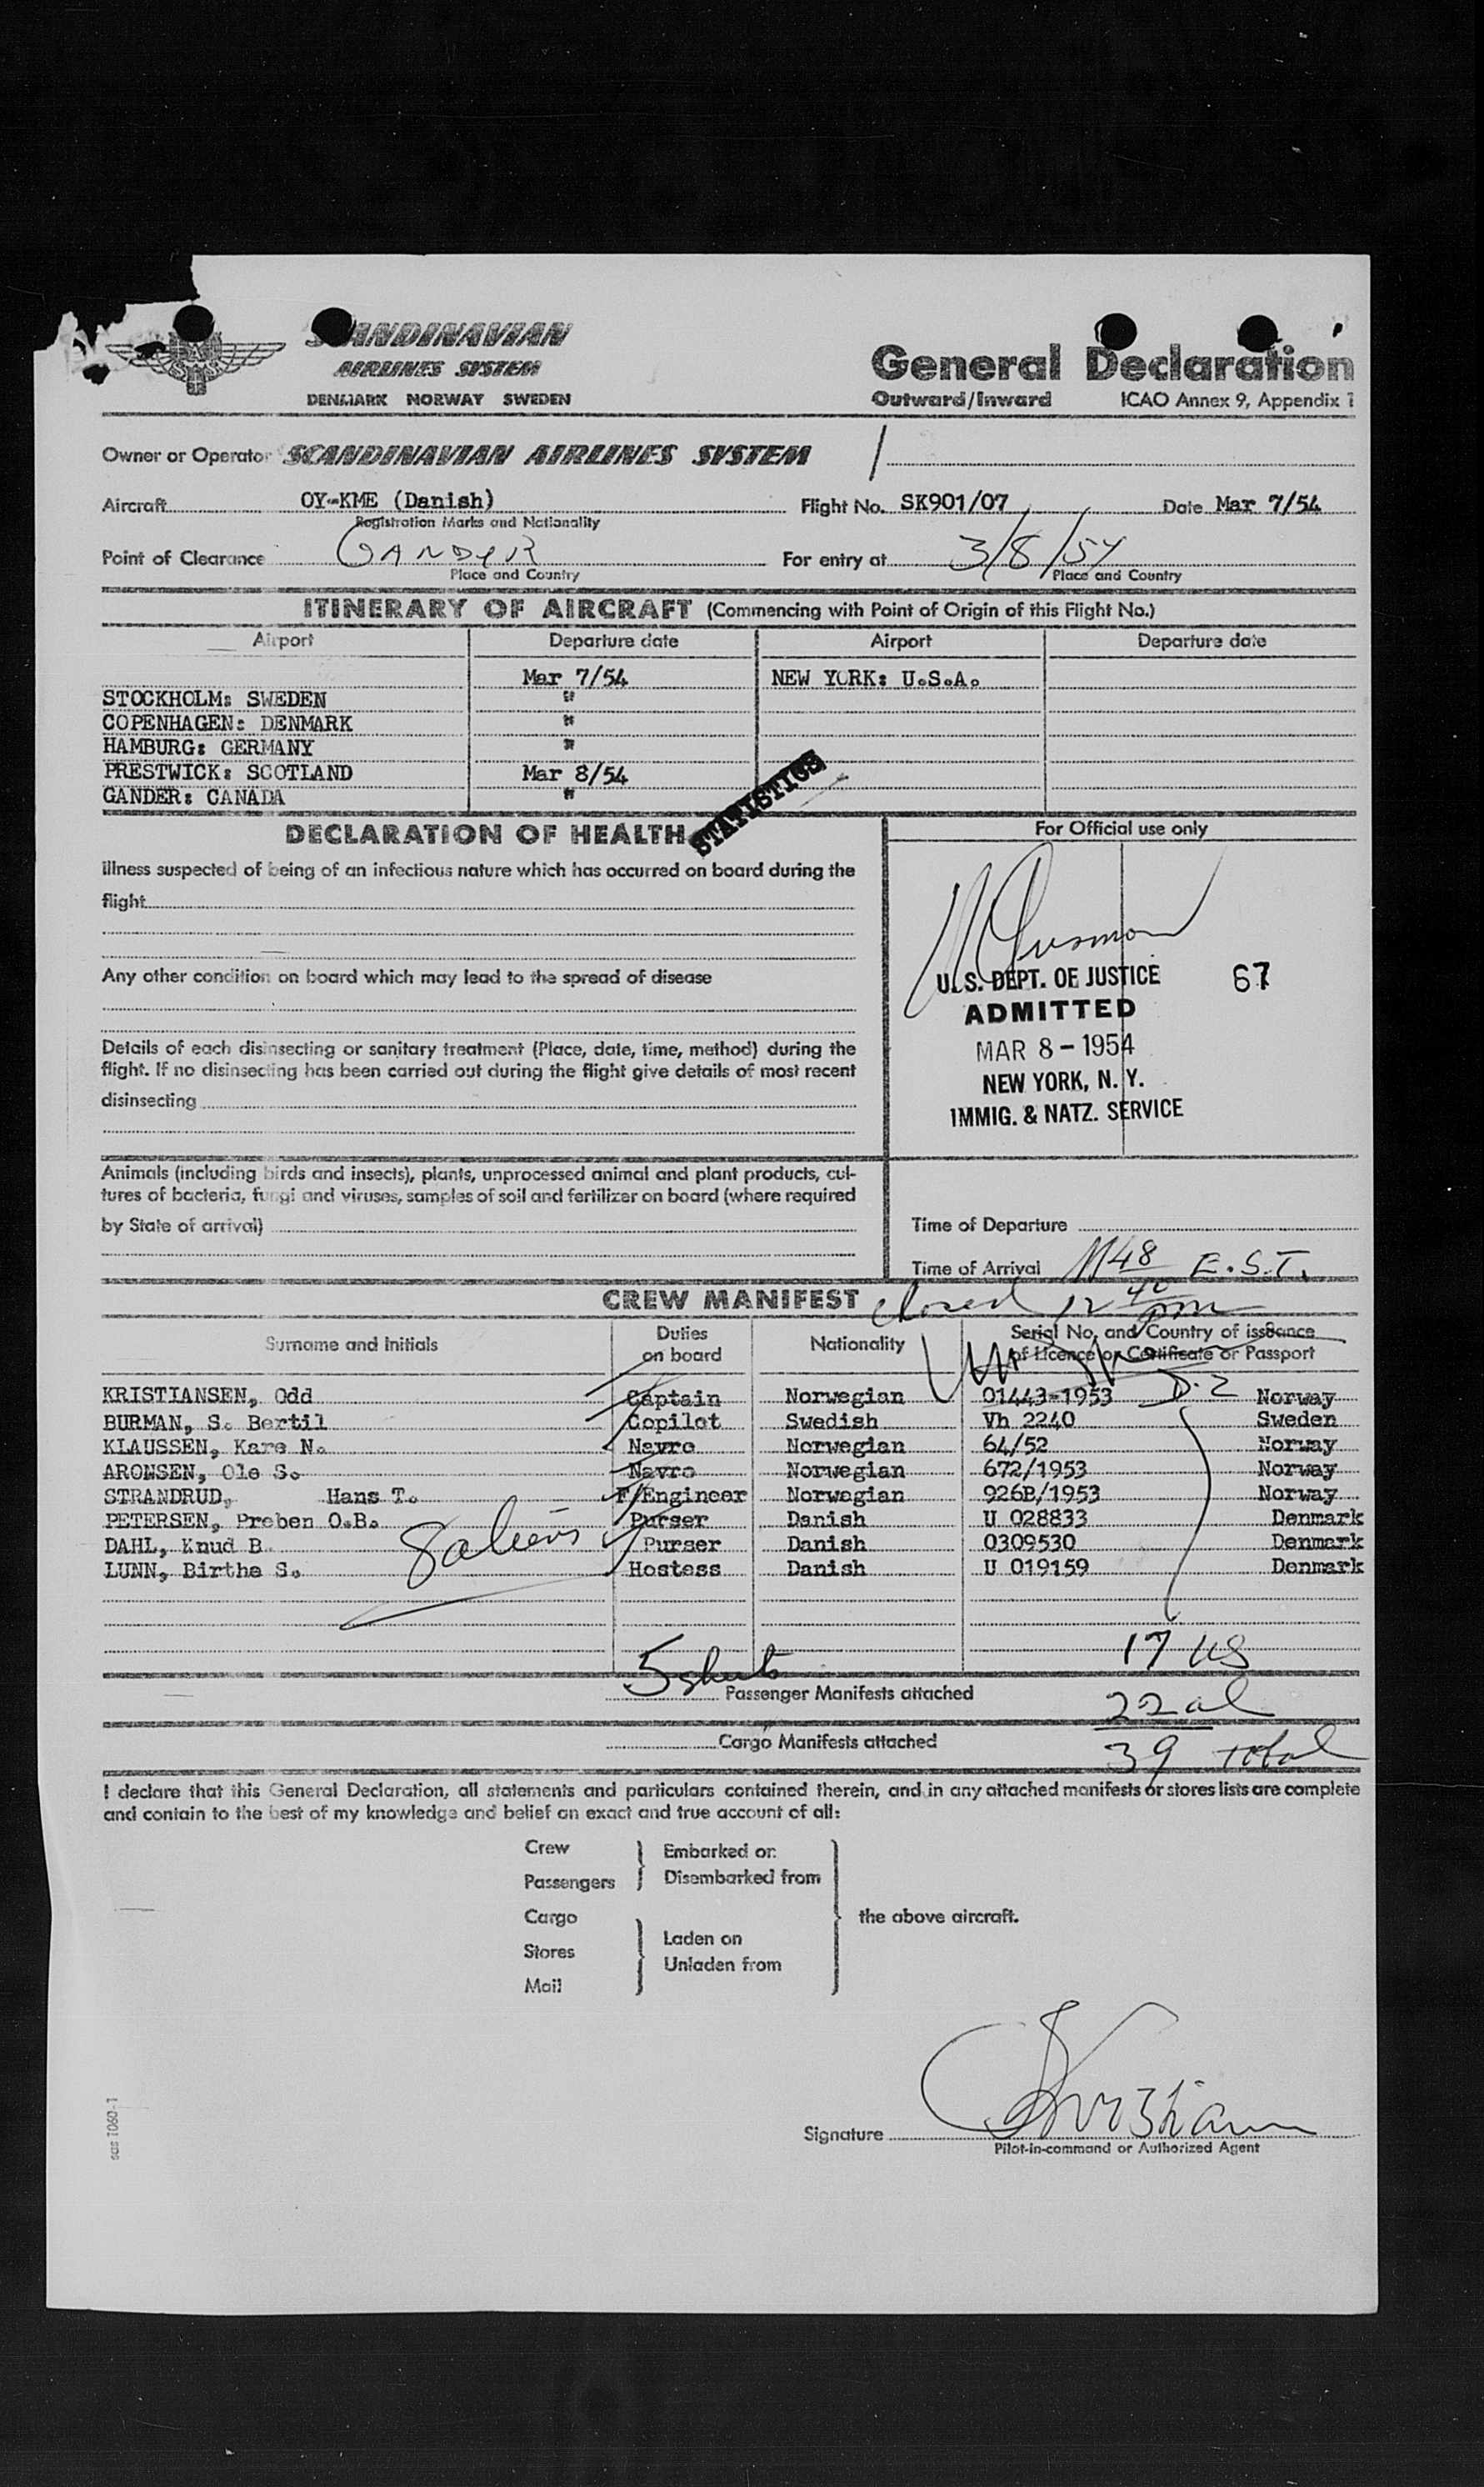 SCANDINAVIAN
AIRLINES SYSTEM
DENMARK NORWAY SWEDEN
General Declaration
Outward/Inward ICAO Annex 9, Appendix 1
Owner or Operator SCANDINAVIAN AIRLINES SYSTEM
Aircraft OY-KME (Danish) Flight No. SK901/07 Date Mar 7/54
Registration Marks and Nationality
Point of Clearance GANDER For entry at 3/8/54
Place and Country Place and Country
ITINERARY OF AIRCRAFT (Commencing with Point of Origin of this Flight No.)
Airport Departure date Airport Departure date
Mar 7/54 NEW YORK: U.S.A.
STOCKHOLM: SWEDEN "
COPENHAGEN: DENMARK "
HAMBURG: GERMANY "
PRESTWICK: SCOTLAND Mar 8/54
GANDER: CANADA "
STATISTICS
DECLARATION OF HEALTH
Illness suspected of being of an infectious nature which has occurred on board during the
flight
Any other condition on board which may lead to the spread of disease
Details of each disinsecting or sanitary treatment (Place, date, time, method) during the
flight. If no disinsecting has been carried out during the flight give details of most recent
disinsecting
Animals (including birds and insects), plants, unprocessed animal and plant products, cul-
tures of bacteria, fungi and viruses, samples of soil and fertilizer on board (where required
by State of arrival)
For Official use only
U.S. DEPT. OF JUSTICE 67
ADMITTED
MAR 8-1954
NEW YORK, N.Y.
IMMIG. & NATZ. SERVICE
Time of Departure
Time of Arrival 1148 E.S.T.
CREW MANIFEST closed 12 40 pm
Surname and Initials Duties on board Nationality Serial No. and Country of issuance of Licence or Certificate or Passport
KRISTIANSEN, Odd Captain Norwegian 01443-1953 D-2 Norway
BURMAN, S. Bertil Copilot Swedish Vh 2240 Sweden
KLAUSSEN, Kare N. Navro Norwegian 64/52 Norway
ARONSEN, Ole S. Navro Norwegian 672/1953 Norway
STRANDRUD, Hans T. F/Engineer Norwegian 926B/1953 Norway
PETERSEN, Preben O.B. Purser Danish U 028833 Denmark
DAHL, Knud B. Purser Danish 0309530 Denmark
LUNN, Birthe S. Hostess Danish U 019159 Denmark
8 aliens
17 US
5 sheets Passenger Manifests attached
22 al
Cargo Manifests attached
39 total
I declare that this General Declaration, all statements and particulars contained therein, and in any attached manifests or stores lists are complete
and contain to the best of my knowledge and belief an exact and true account of all:
Crew
Passengers
Embarked or
Disembarked from
Cargo
Stores
Mail
Laden on
Unladen from
the above aircraft.
Signature
Pilot-in-command or Authorized Agent
sas 1060-1